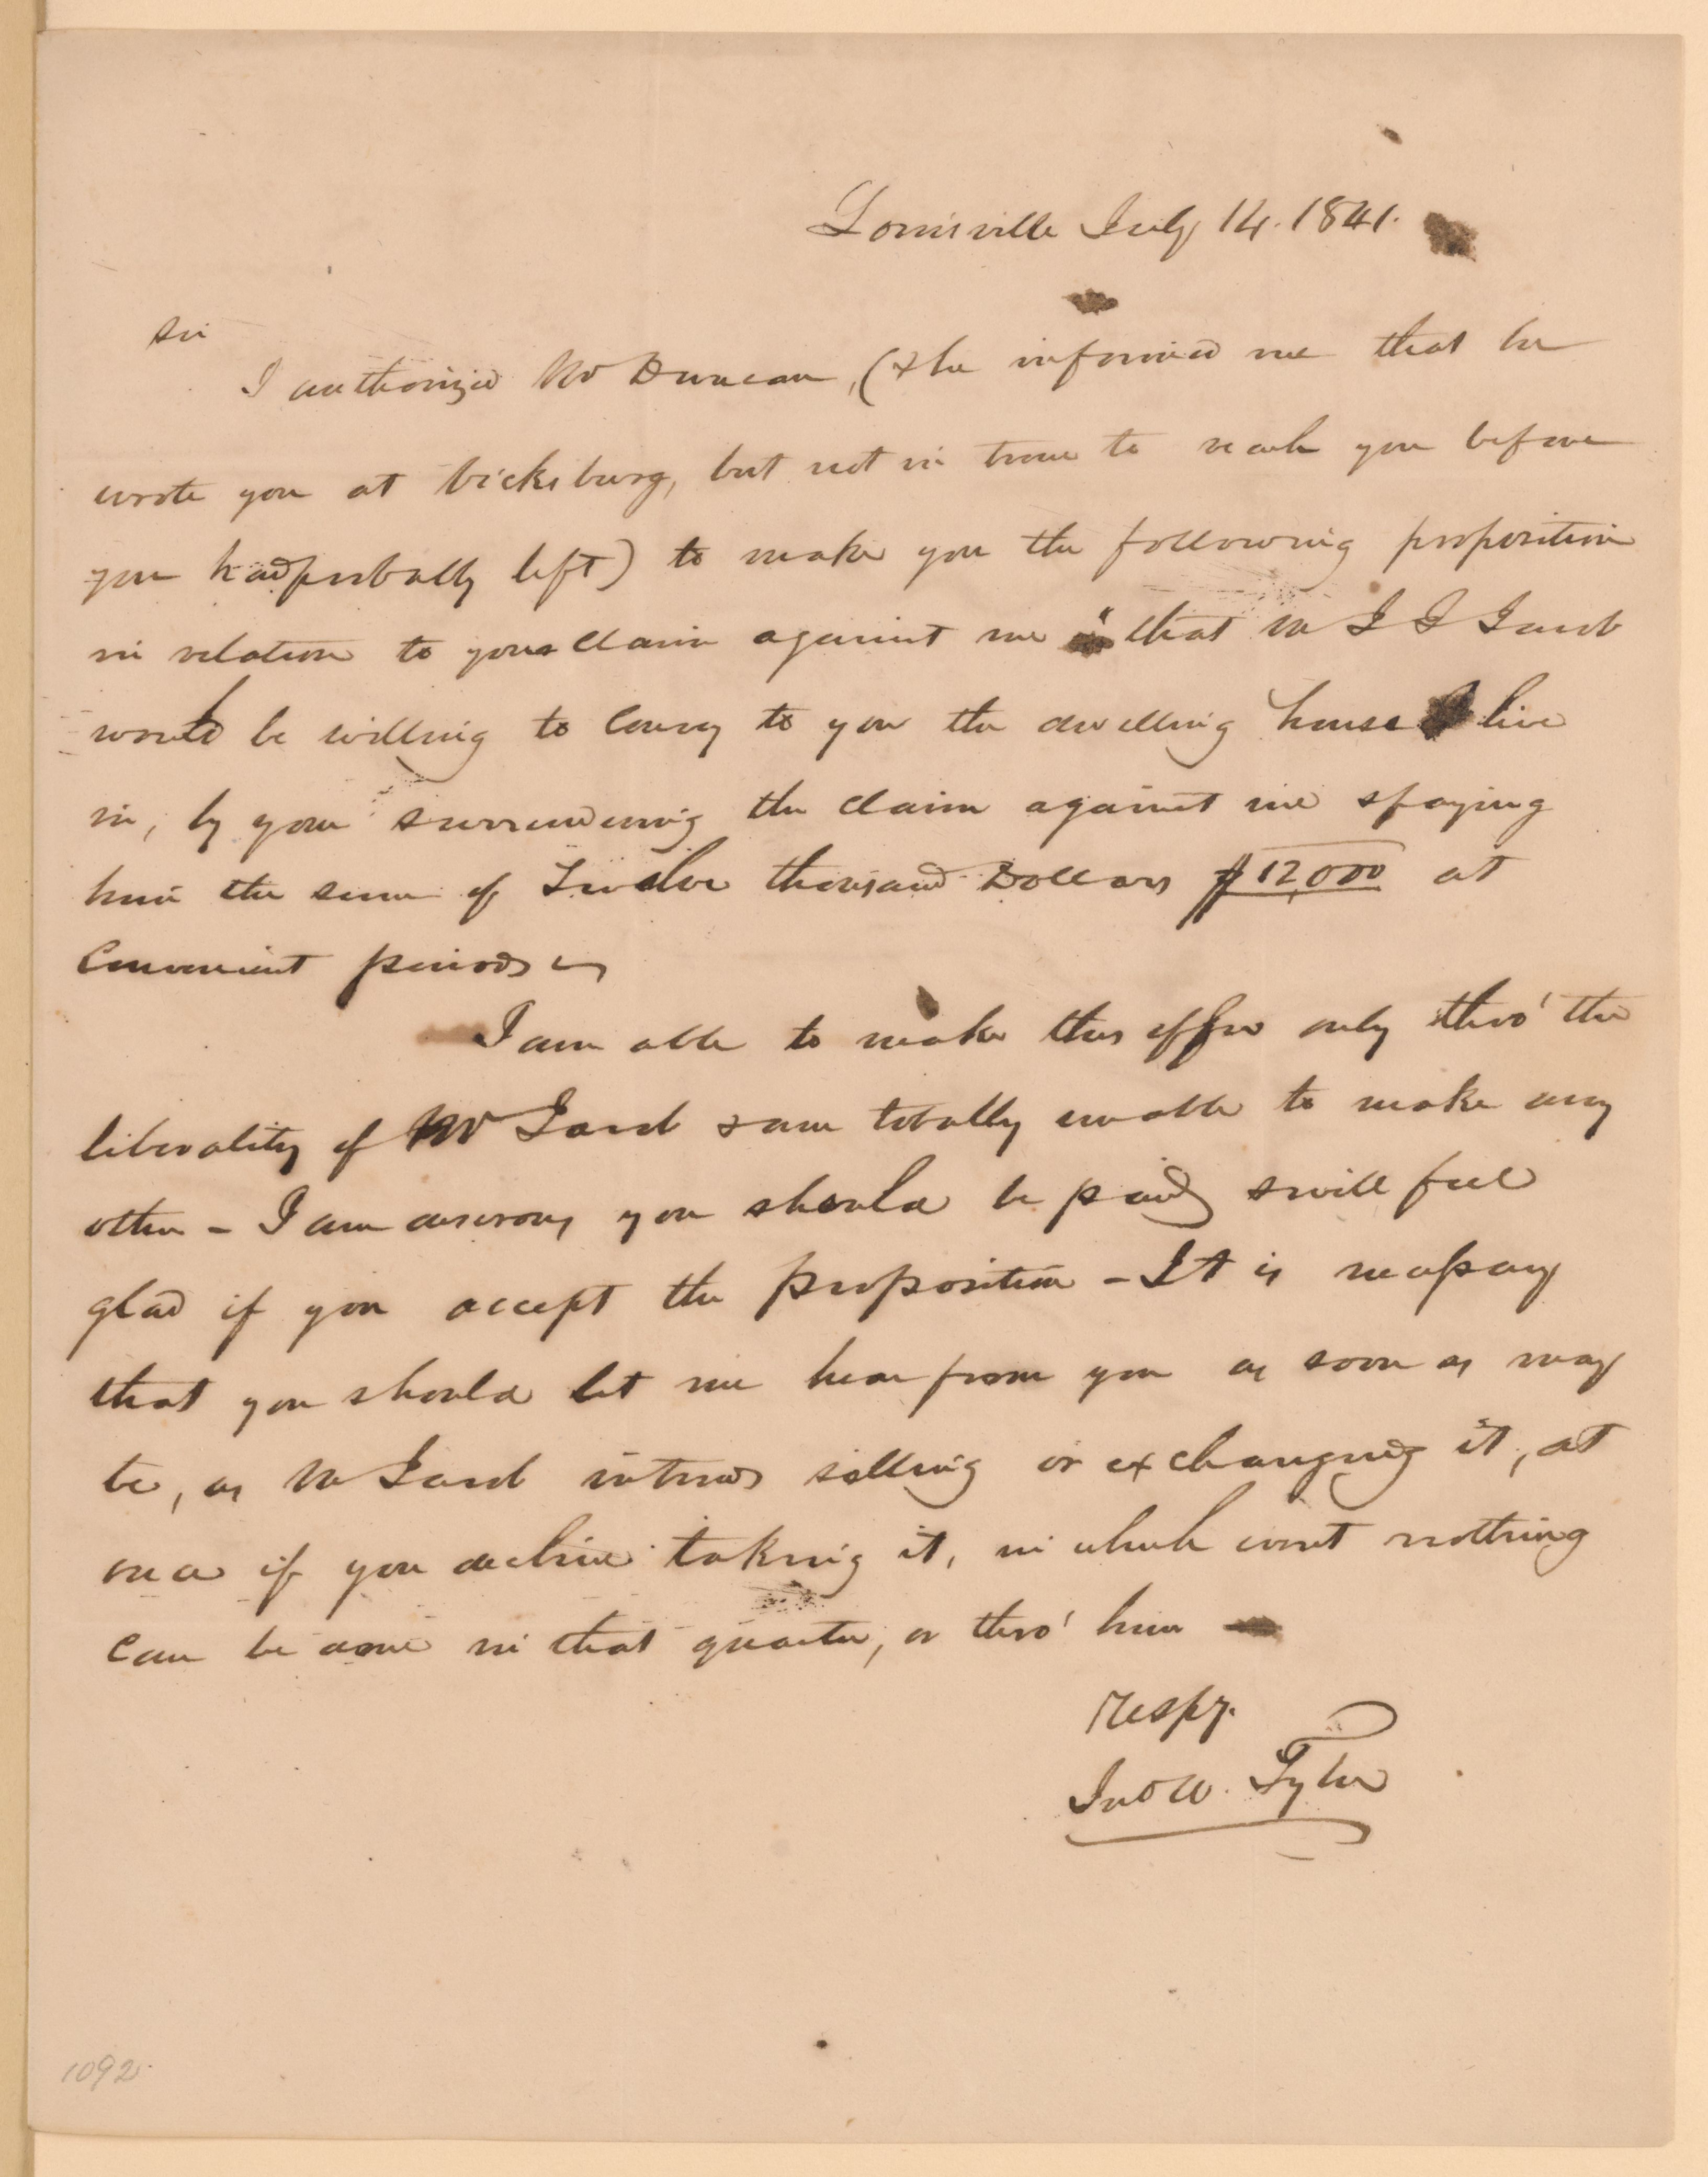 Louisville July 14. 1841.
Sir
I authorized Mr Duncan, (& he informed me that he
wrote you at Vicksburg, but not in time to reach you before
you had probably left) to make you the following proposition
in relation to your claim against me "that Mr J J Jacob
would be willing to convey to you the dwelling house I live
in, by your surrendering the claim against me & paying
him the sum of Twelve thousand Dollars $12,000 at
Convenient periods
I am able to make this offer only thro' the
liberality of Mr Jacob & am totally unable to make any
other - I am desirous you should be paid & will feel
glad if you accept the proposition - It is necessary
that you should let me hear from you as soon as may
be, as Mr Jacob intends selling or exchanging it, at
once if you decline taking it, in which event nothing
can be done in that quarter, or thro' him
Respy.
Jno W. Tyler
1092